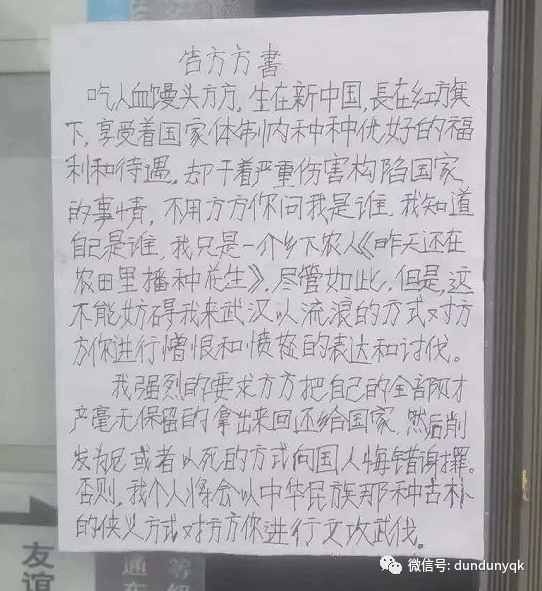 告方方書
吃人血馒头方方，生在新中国，長在红旗
下，享受着国家体制内种种优好的福
利和待遇，却干着严重伤害构陷国家
的事情，不用方方你问我是谁，我知道
自己是谁，我只是一个乡下农人《昨天还在
农田里播种花生》，尽管如此，但是，这
不能妨碍我来武汉以流浪的方式对方
方你进行憎恨和愤怒的表达和讨伐。
我强烈的要求方方把自己的全部财
产毫无保留的拿出来回还给国家，然后削
发为尼或者以死的方式向国人悔错谢罪。
否则，我个人将会以中华民族那种古朴
的侠义方式对方方你进行文攻武伐。
友谊
通
车
等
微信号: dundunyqk